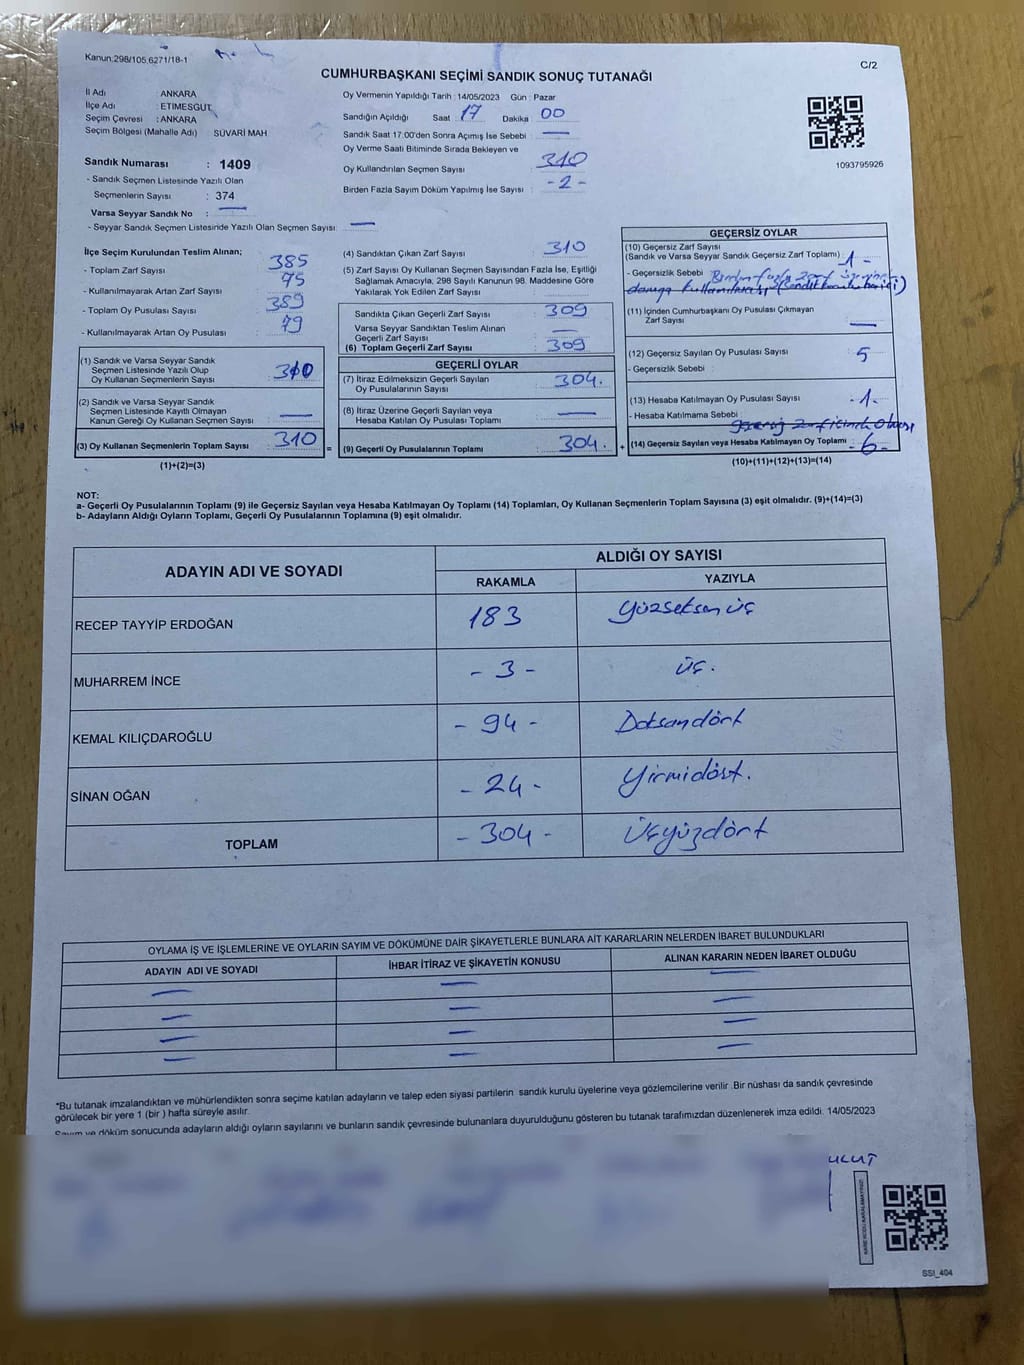 Kanun.298/105.6271/18-1
C/2
CUMHURBAŞKANI SEÇİMİ SANDIK SONUÇ TUTANAĞI
İl Adı : ANKARA
İlçe Adı : ETİMESGUT
Seçim Çevresi : ANKARA
Seçim Bölgesi (Mahalle Adı) SÜVARİ MAH
Sandık Numarası : 1409
- Sandık Seçmen Listesinde Yazılı Olan
Seçmenlerin Sayısı : 374
Varsa Seyyar Sandık No :
- Seyyar Sandık Seçmen Listesinde Yazılı Olan Seçmen Sayısı:
Oy Vermenin Yapıldığı Tarih : 14/05/2023 Gün : Pazar
Sandığın Açıldığı Saat 17 Dakika 00
Sandık Saat 17:00'den Sonra Açımış İse Sebebi
Oy Verme Saati Bitiminde Sırada Bekleyen ve
Oy Kullandırılan Seçmen Sayısı : 310
Birden Fazla Sayım Döküm Yapılmış İse Sayısı : -2-
1093795926
İlçe Seçim Kurulundan Teslim Alınan;
- Toplam Zarf Sayısı : 385
- Kullanılmayarak Artan Zarf Sayısı : 75
- Toplam Oy Pusulası Sayısı : 389
- Kullanılmayarak Artan Oy Pusulası : 79
(1) Sandık ve Varsa Seyyar Sandık
Seçmen Listesinde Yazılı Olup
Oy Kullanan Seçmenlerin Sayısı : 310
(2) Sandık ve Varsa Seyyar Sandık
Seçmen Listesinde Kayıtlı Olmayan
Kanun Gereği Oy Kullanan Seçmen Sayısı :
(3) Oy Kullanan Seçmenlerin Toplam Sayısı : 310
(1)+(2)=(3)
=
(4) Sandıktan Çıkan Zarf Sayısı : 310
(5) Zarf Sayısı Oy Kullanan Seçmen Sayısından Fazla İse, Eşitliği
Sağlamak Amacıyla, 298 Sayılı Kanunun 98. Maddesine Göre
Yakılarak Yok Edilen Zarf Sayısı :
Sandıkta Çıkan Geçerli Zarf Sayısı : 309
Varsa Seyyar Sandıktan Teslim Alınan
Geçerli Zarf Sayısı :
(6) Toplam Geçerli Zarf Sayısı : 309
GEÇERLİ OYLAR
(7) İtiraz Edilmeksizin Geçerli Sayılan
Oy Pusulalarının Sayısı : 304.
(8) İtiraz Üzerine Geçerli Sayılan veya
Hesaba Katılan Oy Pusulası Toplamı :
(9) Geçerli Oy Pusulalarının Toplamı : 304.
+
GEÇERSİZ OYLAR
(10) Geçersiz Zarf Sayısı
(Sandık ve Varsa Seyyar Sandık Geçersiz Zarf Toplamı) : 1 -
- Geçersizlik Sebebi Birden fazla zarf üzerinde
damga kullanılması (Sandık kurulu harici)
(11) İçinden Cumhurbaşkanı Oy Pusulası Çıkmayan
Zarf Sayısı :
(12) Geçersiz Sayılan Oy Pusulası Sayısı : 5
- Geçersizlik Sebebi :
(13) Hesaba Katılmayan Oy Pusulası Sayısı : -1-
- Hesaba Katılmama Sebebi :
(14) Geçersiz Sayılan veya Hesaba Katılmayan Oy Toplamı : -6-
(10)+(11)+(12)+(13)=(14)
NOT:
a- Geçerli Oy Pusulalarının Toplamı (9) ile Geçersiz Sayılan veya Hesaba Katılmayan Oy Toplamı (14) Toplamları, Oy Kullanan Seçmenlerin Toplam Sayısına (3) eşit olmalıdır. (9)+(14)=(3)
b- Adayların Aldığı Oyların Toplamı, Geçerli Oy Pusulalarının Toplamına (9) eşit olmalıdır.
ADAYIN ADI VE SOYADI
ALDIĞI OY SAYISI
RAKAMLA YAZIYLA
RECEP TAYYİP ERDOĞAN 183 Yüzseksen üç
MUHARREM İNCE - 3 - üç.
KEMAL KILIÇDAROĞLU - 94 - Doksandört
SİNAN OĞAN - 24 - Yirmidört.
TOPLAM - 304 - Üçyüzdört
OYLAMA İŞ VE İŞLEMLERİNE VE OYLARIN SAYIM VE DÖKÜMÜNE DAİR ŞİKAYETLERLE BUNLARA AİT KARARLARIN NELERDEN İBARET BULUNDUKLARI
ADAYIN ADI VE SOYADI İHBAR İTİRAZ VE ŞİKAYETİN KONUSU ALINAN KARARIN NEDEN İBARET OLDUĞU
*Bu tutanak imzalandıktan ve mühürlendikten sonra seçime katılan adayların ve talep eden siyasi partilerin sandık kurulu üyelerine veya gözlemcilerine verilir .Bir nüshası da sandık çevresinde
görülecek bir yere 1 (bir ) hafta süreyle asılır.
Sayım ve döküm sonucunda adayların aldığı oyların sayılarını ve bunların sandık çevresinde bulunanlara duyurulduğunu gösteren bu tutanak tarafımızdan düzenlenerek imza edildi. 14/05/2023
KARE KODU KARALAMAYINIZ!
SSI_404